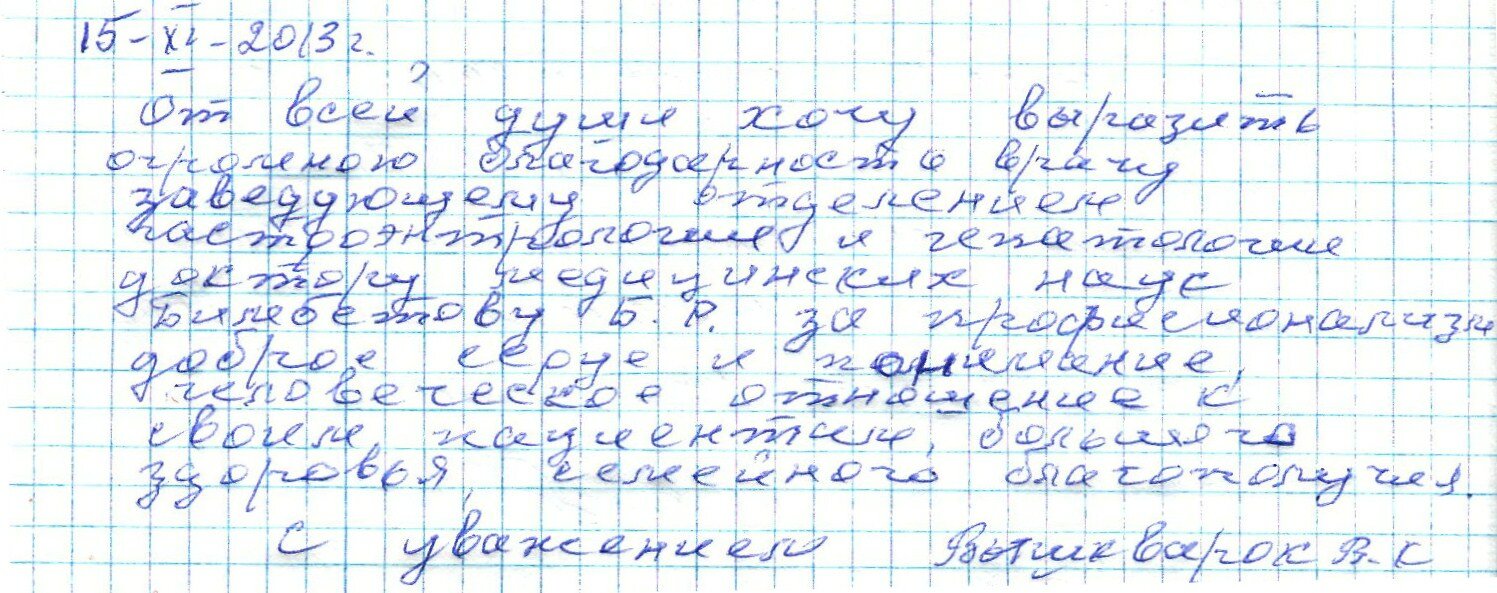 15-XI-2013г.
От всей души хочу выразить
огромною благодарность врачу
заведующему отделением
гастроэнтрологие и гепатологие
доктору медицинских наук
Бимбетову Б.Р. за професионализм
доброе серце и понимание,
человеческое отношение к
своим пациентам, большого
здоровья, семейного благополучия.
С уважением В.К